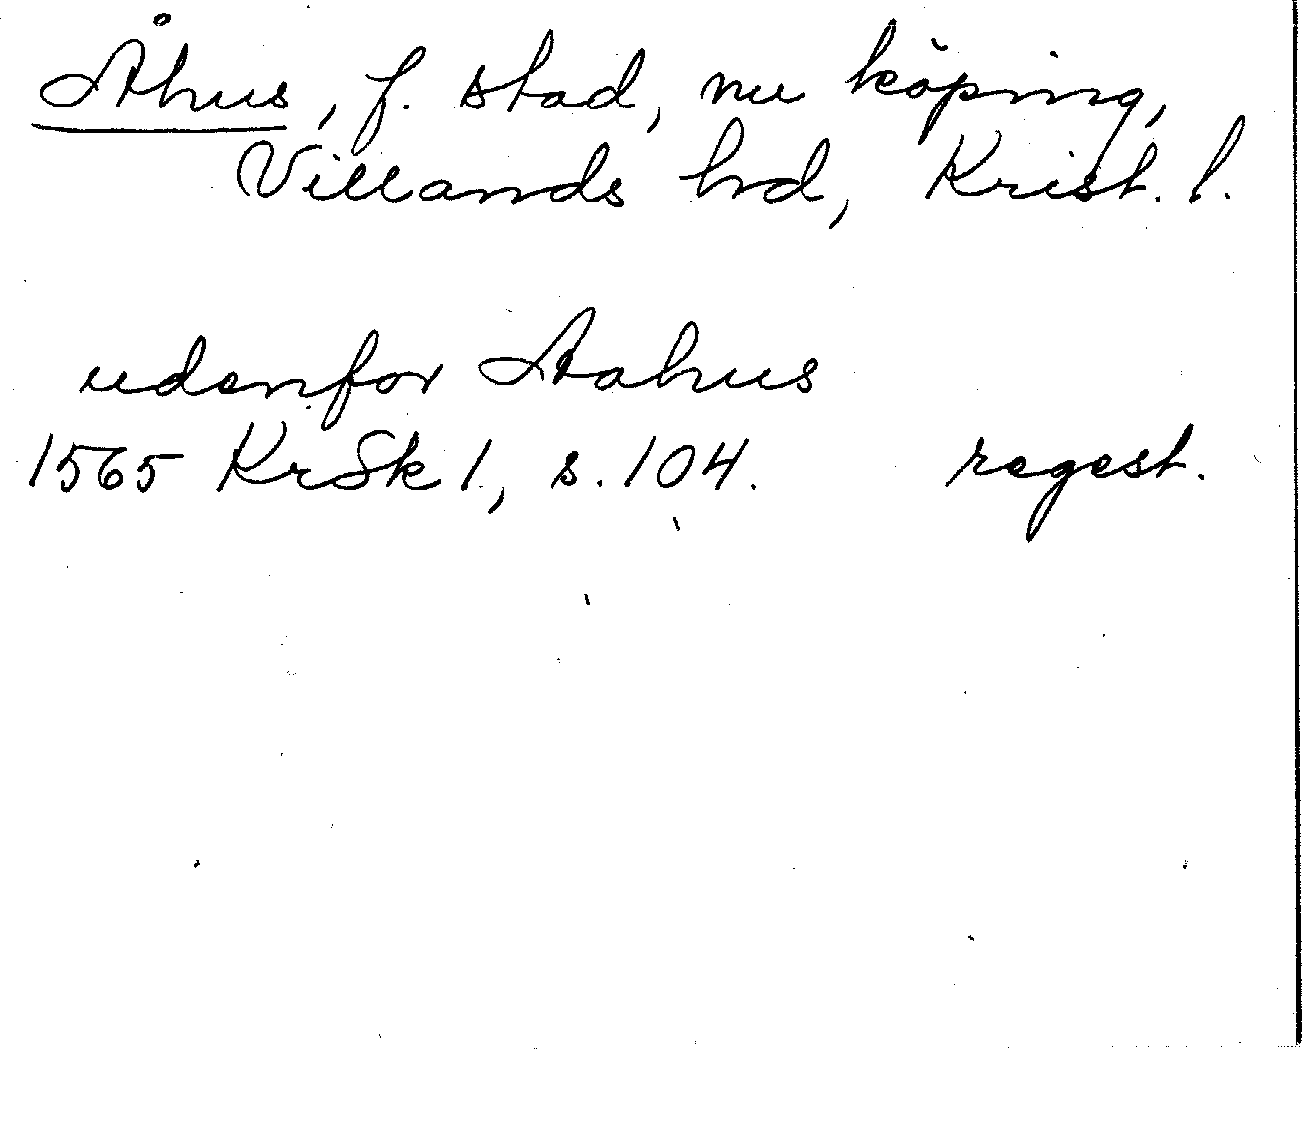 Åhus, f. stad, nu köping,
Villands hrd, Krist. l.
udenfor Aahus
1565 KrSk 1, s. 104. regest.